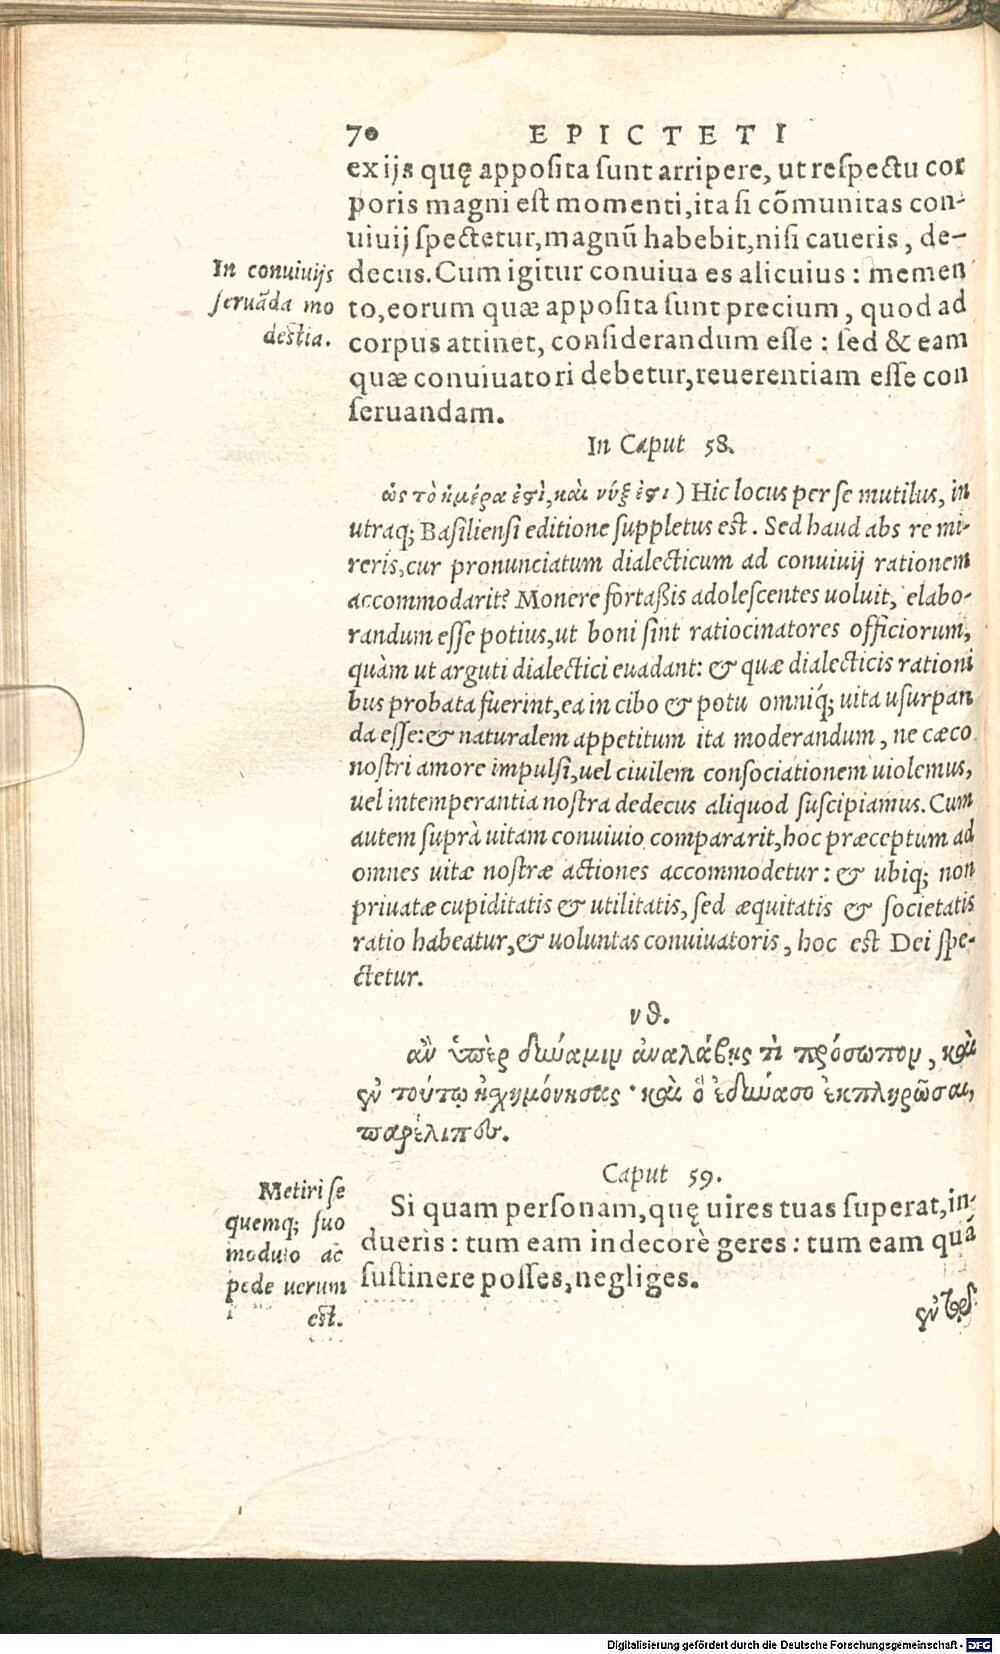 70 EPICTETI
ex ijs quę apposita sunt arripere, ut respectu cor
poris magni est momenti, ita si cõmunitas con-
uiuij spectetur, magnũ habebit, nisi caueris, de-
decus. Cum igitur conuiua es alicuius: memen
to, eorum quæ apposita sunt precium, quod ad
corpus attinet, considerandum esse: sed & eam
quæ conuiuatori debetur, reuerentiam esse con
seruandam.
In conuiuijs
seruãda mo
destia.
In Caput 58.
ὡς τὸ ἡμέρα ἐστὶ, καὶ νύξ ἐστι) Hic locus per se mutilus, in
utraq; Basiliensi editione suppletus est. Sed haud abs re mi-
reris, cur pronunciatum dialecticum ad conuiuij rationem
accommodarit? Monere fortaßis adolescentes uoluit, elabo-
randum esse potius, ut boni sint ratiocinatores officiorum,
quàm ut arguti dialectici euadant: & quæ dialecticis rationi
bus probata fuerint, ea in cibo & potu omniq́; uita usurpan
da esse: & naturalem appetitum ita moderandum, ne cæco
nostri amore impulsi, uel ciuilem consociationem uiolemus,
uel intemperantia nostra dedecus aliquod suscipiamus. Cum
autem suprà uitam conuiuio compararit, hoc præceptum ad
omnes uitæ nostræ actiones accommodetur: & ubiq; non
priuatæ cupiditatis & utilitatis, sed æquitatis & societatis
ratio habeatur, & uoluntas conuiuatoris, hoc est Dei spe-
ctetur.
νθ.
ἂν ὑπὲρ δύναμιν ἀναλάβῃς τὶ πρόσωπον, καὶ
ἐν τούτῳ ἠσχημόνησας· καὶ ὃ ἐδύνασο ἐκπληρῶσαι,
παρέλιπες.
Caput 59.
Si quam personam, quę uires tuas superat, in-
dueris: tum eam indecorè geres: tum eam quã
sustinere posses, negliges.
Metiri se
quemq; suo
modulo ac
pede uerum
est.
Digitalisierung gefördert durch die Deutsche Forschungsgemeinschaft - DFG